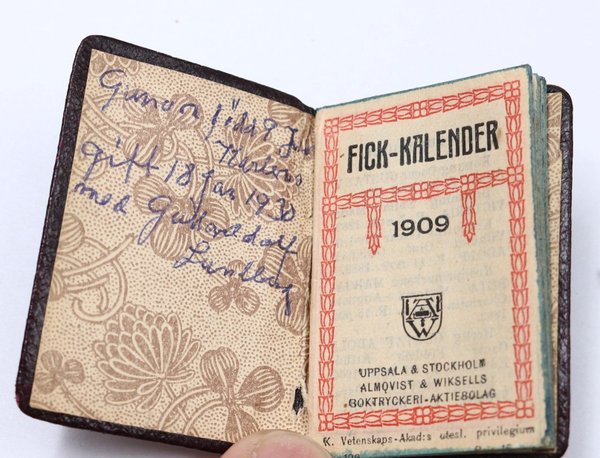 Gunvor född 9
gift 18 jan 1930
med
FICK-KALENDER
1909
UPPSALA & STOCKHOLM
ALMQVIST & WIKSELLS
BOKTRYCKERI-AKTIEBOLAG
K. Vetenskaps-Akad:s utesl. privilegium